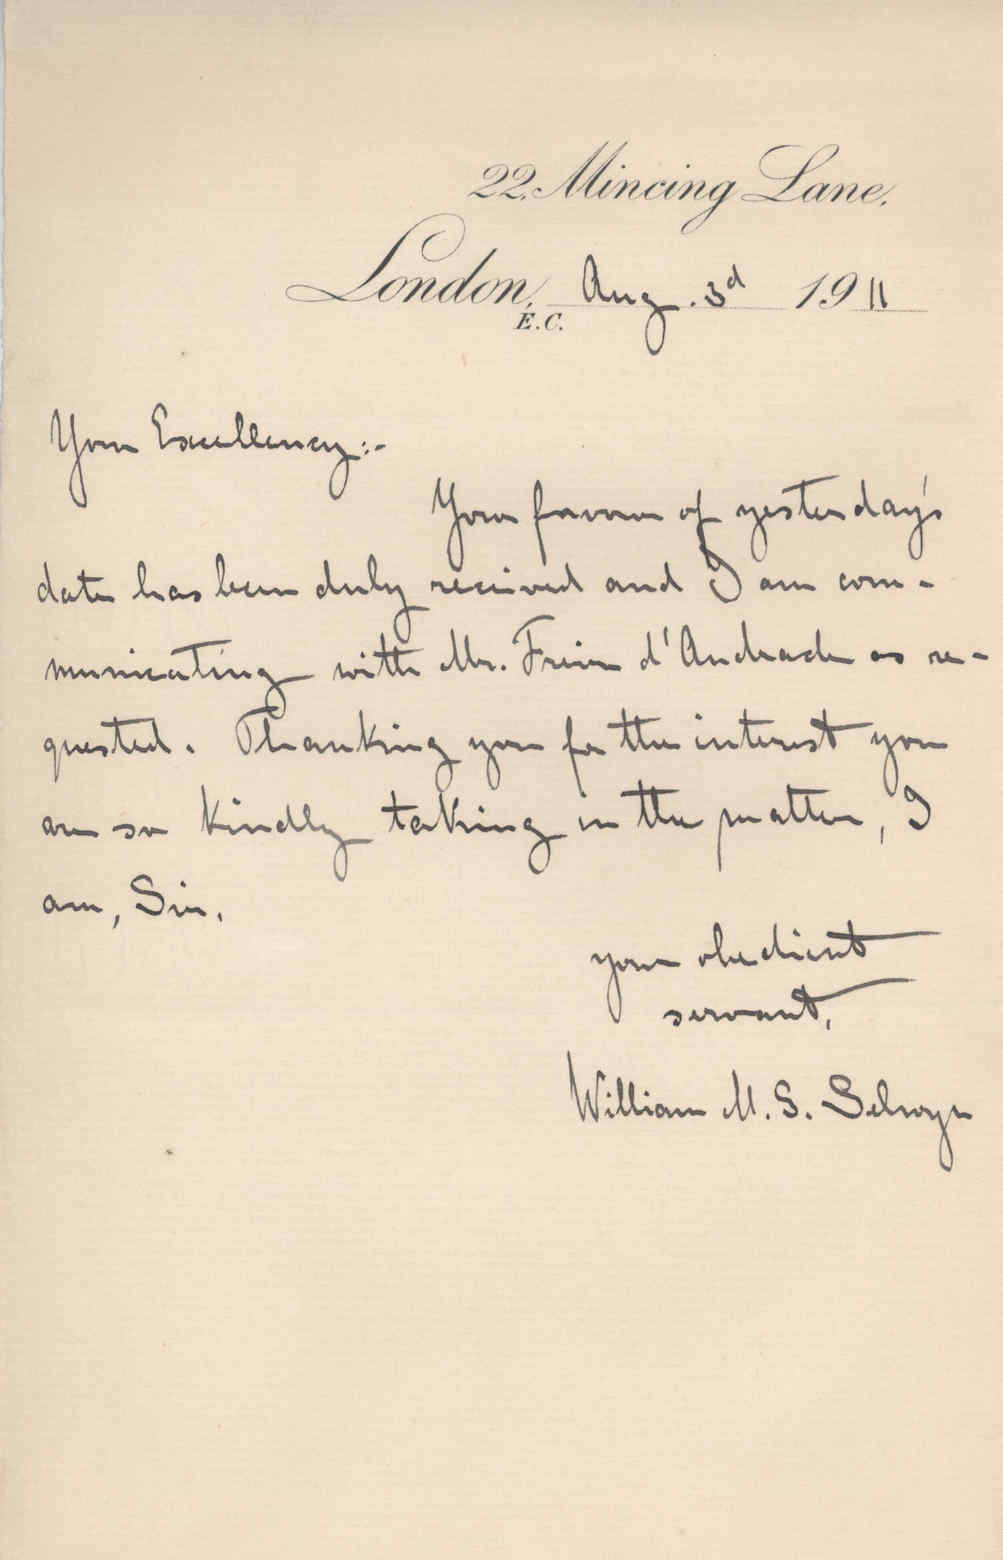 22. Mincing Lane.
London, Aug. 3d 1911
E.C.
Your Excellency:-
Your favour of yesterday's
date has been duly received and I am com-
municating with Mr. Freire d'Andrade as re-
quested. Thanking you for the interest you
are so kindly taking in the matter, I
am, Sir,
your obedient
servant,
William M. S. Selwyn